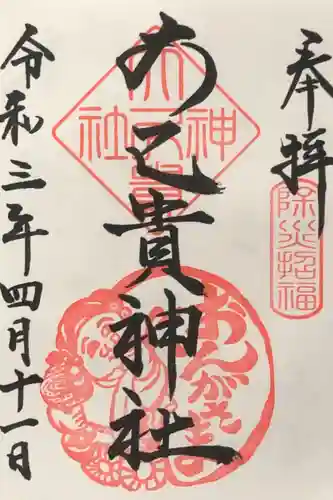 奉拝
除災招福
大己貴神社
大己貴神社
おんがさま
令和三年四月十一日